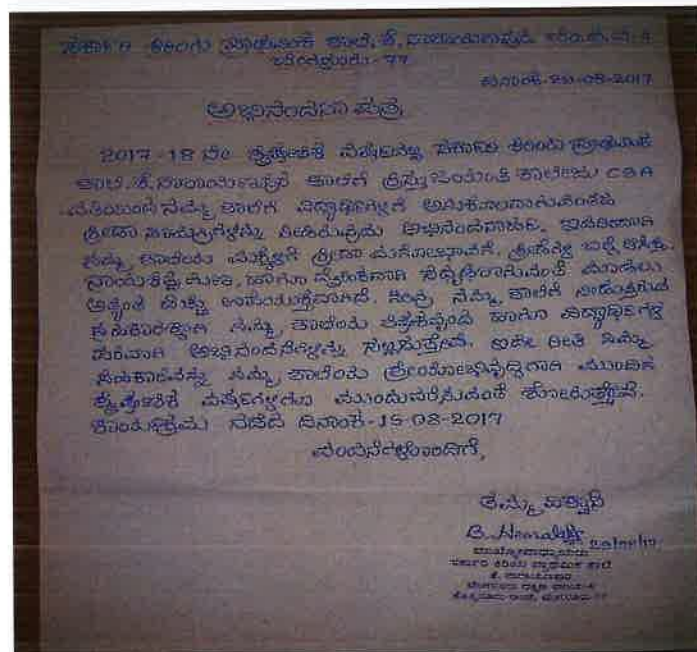 ಸರ್ಕಾರಿ ಕಿರಿಯ ಪ್ರಾಥಮಿಕ ಶಾಲೆ, ಕೆ. ನಾರಾಯಣಪುರ
ಬೆಂಗಳೂರು-77
ದಿನಾಂಕ-20-08-2017
ಅಭಿನಂದನಾ ಪತ್ರ
2017-18 ನೇ ಶೈಕ್ಷಣಿಕ ವರ್ಷದಲ್ಲಿ ಸರ್ಕಾರಿ ಕಿರಿಯ ಪ್ರಾಥಮಿಕ
ಶಾಲೆ. ಕೆ. ನಾರಾಯಣಪುರ ಶಾಲೆಗೆ ಕ್ರಿಸ್ತು ಜಯಂತಿ ಕಾಲೇಜು CSA
ವತಿಯಿಂದ ನಮ್ಮ ಶಾಲೆಗೆ ವಿದ್ಯಾರ್ಥಿಗಳಿಗೆ ಅನುಕೂಲವಾಗುವಂತಹ
ಕ್ರೀಡಾ ಸಾಮಗ್ರಿಗಳನ್ನು ನೀಡಿರುತ್ತಿರುವ ಅಭಿನಂದನಾರ್ಹ. ಇದರಿಂದಾಗಿ
ನಮ್ಮ ಶಾಲೆಯ ಮಕ್ಕಳಿಗೆ ಕ್ರೀಡಾ ಮನೋಭಾವನೆ, ಕ್ರೀಡೆಗಳ ಬಗ್ಗೆ ಆಸಕ್ತಿ,
ನಾಯಕತ್ವ ಗುಣ, ಹಾಗೂ ದೈಹಿಕವಾಗಿ ಸದೃಢರಾಗುವಂತೆ ಮಾಡಲು
ಅತ್ಯಂತ ಹೆಚ್ಚು ಉಪಯುಕ್ತವಾಗಿದೆ. ನಮ್ಮ ಶಾಲೆಗೆ ನೀಡುತ್ತಿರುವ
ಸಹಕಾರಕ್ಕಾಗಿ ನಮ್ಮ ಶಾಲೆಯ ಶಿಕ್ಷಕವೃಂದ ಹಾಗೂ ವಿದ್ಯಾರ್ಥಿಗಳ
ಪರವಾಗಿ ಅಭಿನಂದನೆಗಳನ್ನು ಸಲ್ಲಿಸುತ್ತೇವೆ. ಇದೇ ರೀತಿ ನಿಮ್ಮ
ಸಹಕಾರವನ್ನು ನಮ್ಮ ಶಾಲೆಯ ಶ್ರೇಯೋಭಿವೃದ್ಧಿಗಾಗಿ ಮುಂದಿನ
ಶೈಕ್ಷಣಿಕ ವರ್ಷಗಳಲ್ಲೂ ಮುಂದುವರೆಸುವಂತೆ ಕೋರುತ್ತೇವೆ.
ಕಾರ್ಯಕ್ರಮ ನಡೆದ ದಿನಾಂಕ-15-08-2017
ವಂದನೆಗಳೊಂದಿಗೆ,
ತಮ್ಮ ವಿಶ್ವಾಸಿ
ಮುಖ್ಯೋಪಾಧ್ಯಾಯರು
ಸರ್ಕಾರಿ ಕಿರಿಯ ಪ್ರಾಥಮಿಕ ಶಾಲೆ
ಕೆ. ನಾರಾಯಣಪುರ